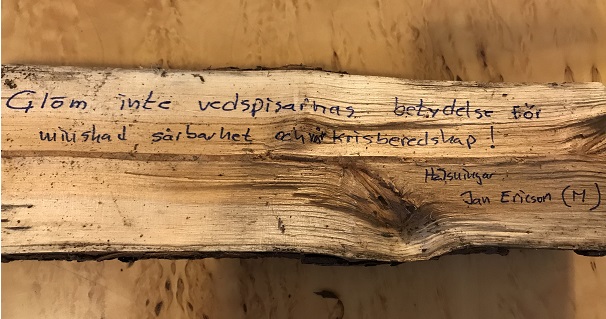 Glöm inte vedspisarnas betydelse för
minskad sårbarhet och krisberedskap!
Hälsningar
Jan Ericson (M)